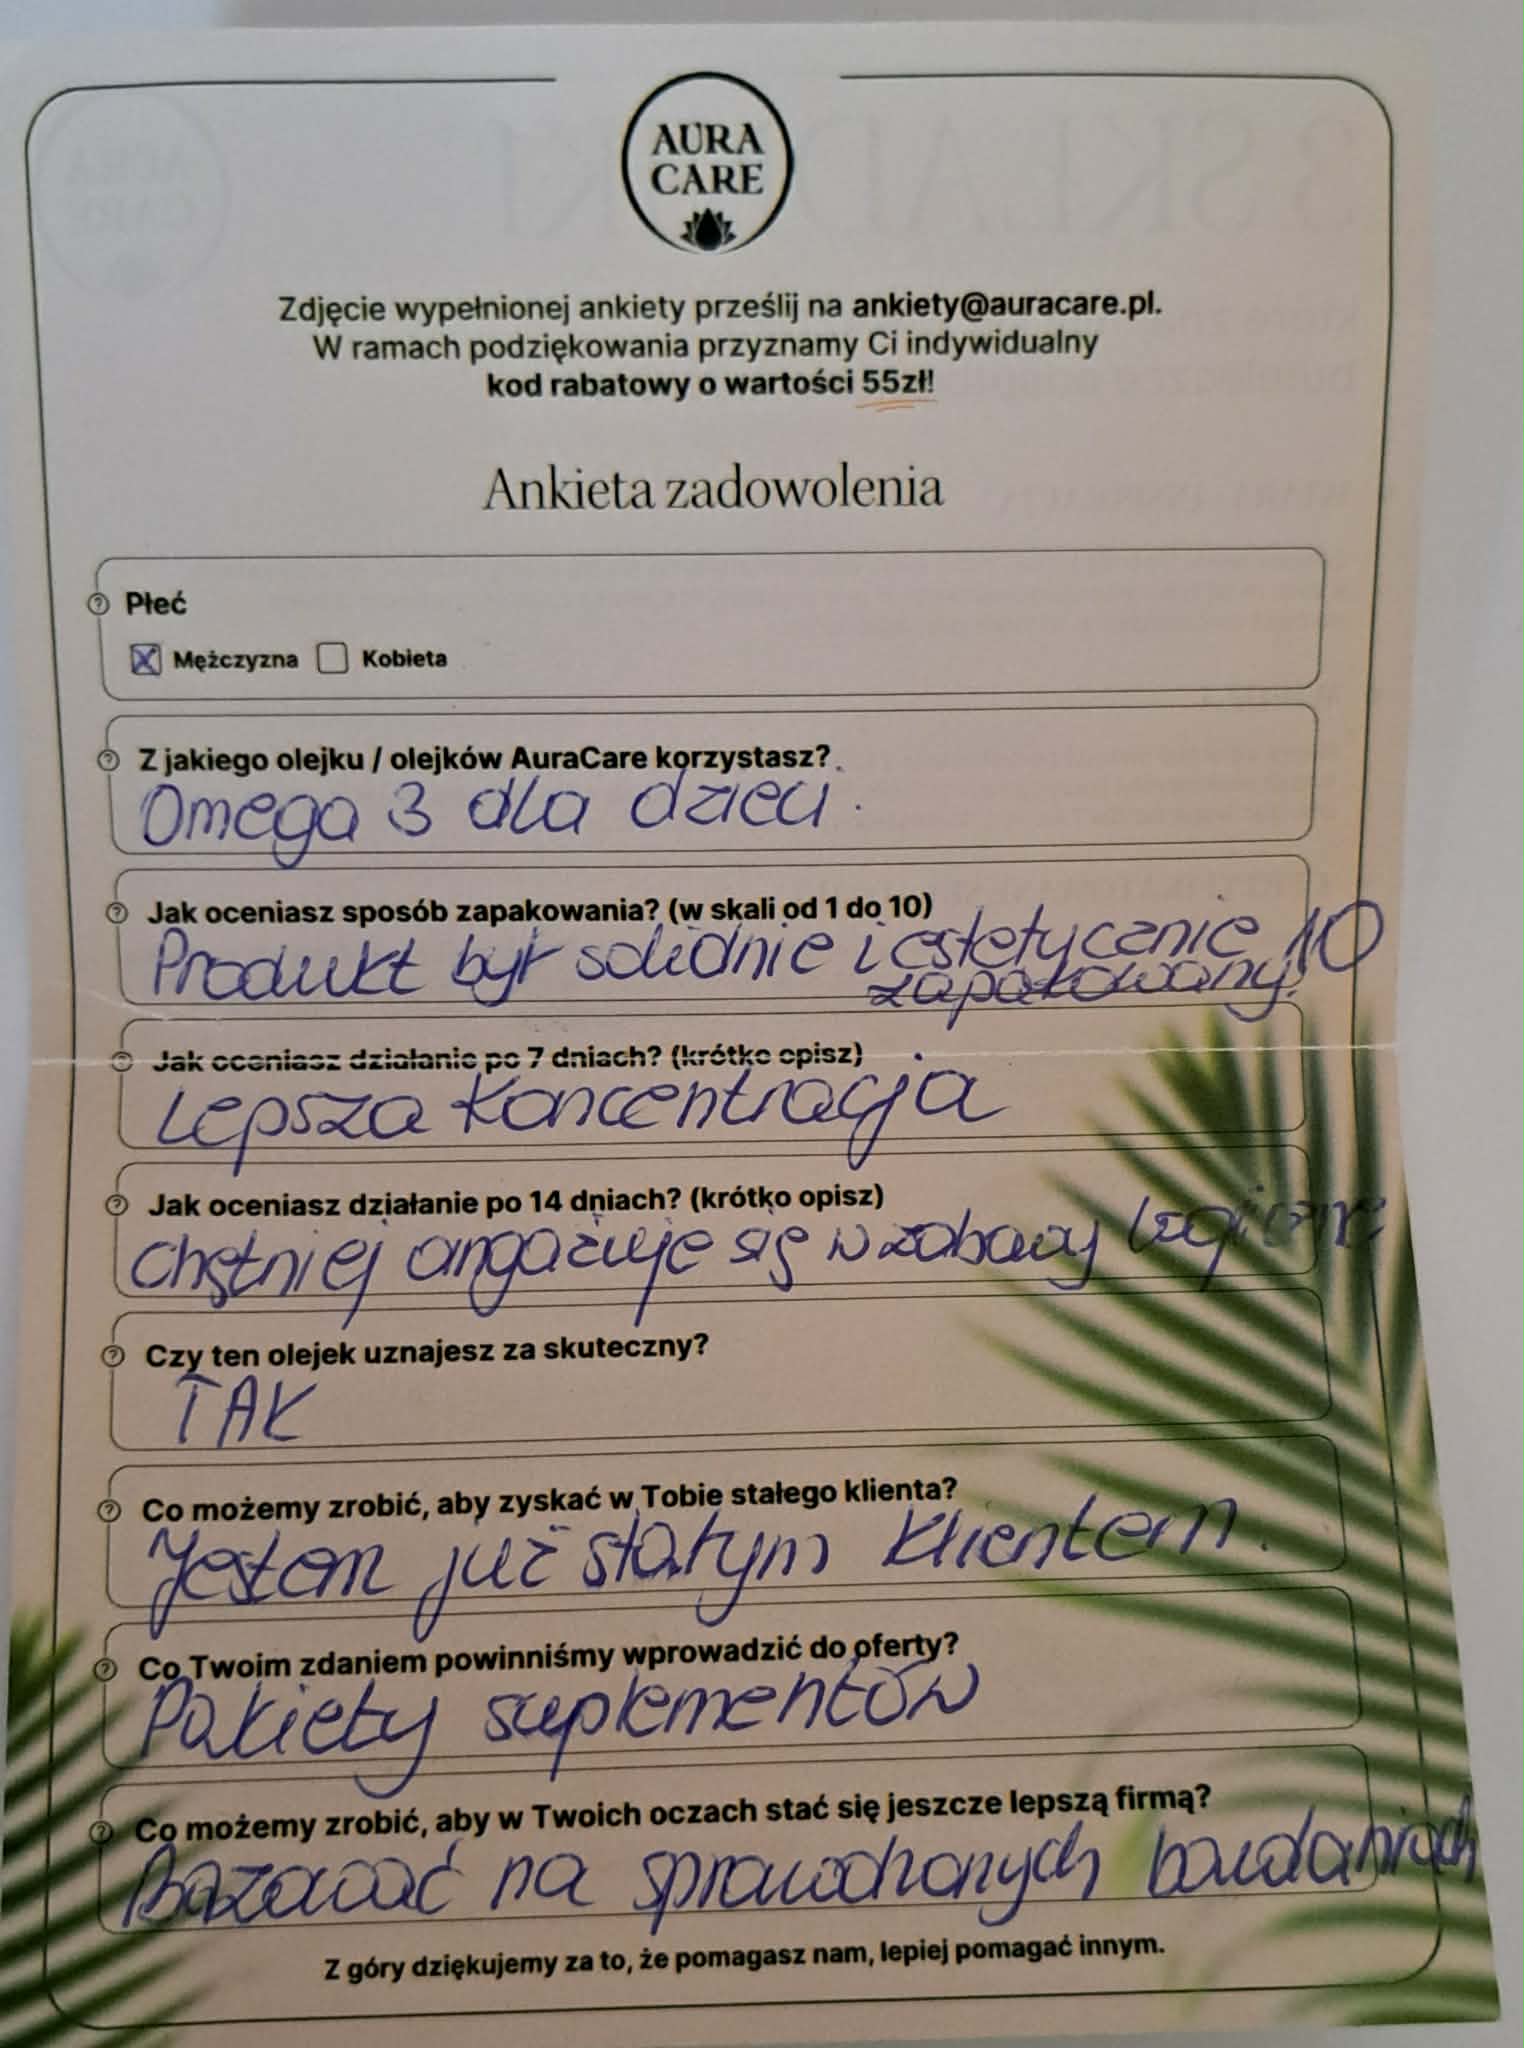 AURA
CARE
Zdjęcie wypełnionej ankiety prześlij na ankiety@auracare.pl.
W ramach podziękowania przyznamy Ci indywidualny
kod rabatowy o wartości 55zł!
Ankieta zadowolenia
Płeć
Mężczyzna Kobieta
Z jakiego olejku / olejków AuraCare korzystasz?
Omega 3 dla dzieci.
Jak oceniasz sposób zapakowania? (w skali od 1 do 10)
Produkt był solidnie i estetycznie 10
zapakowany!
Jak oceniasz działanie po 7 dniach? (krótko opisz)
Lepsza koncentracja
Jak oceniasz działanie po 14 dniach? (krótko opisz)
Chętniej angażuje się w zabawy logiczne
Czy ten olejek uznajesz za skuteczny?
TAK
Co możemy zrobić, aby zyskać w Tobie stałego klienta?
Jestem już stałym klientem.
Co Twoim zdaniem powinniśmy wprowadzić do oferty?
Pakiety suplementów
Co możemy zrobić, aby w Twoich oczach stać się jeszcze lepszą firmą?
Bazować na sprawdzonych badaniach
Z góry dziękujemy za to, że pomagasz nam, lepiej pomagać innym.